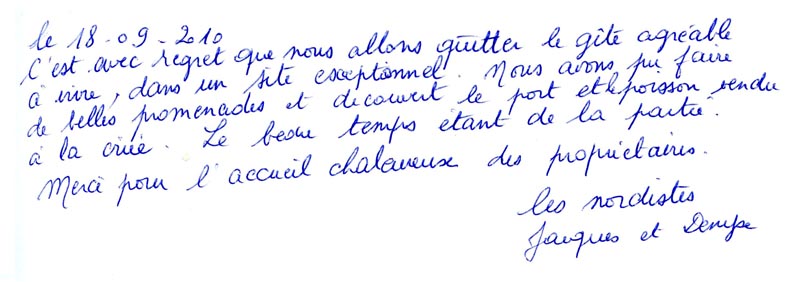 le 18-09-2010
C'est avec regret que nous allons quitter le gîte agréable
à vivre, dans un site exceptionnel. Nous avons pu faire
de belles promenades et découvert le port et le poisson vendu
à la criée. Le beau temps étant de la partie.
Merci pour l'accueil chalaureuse des propriétaires.
les nordistes
Jacques et Denyse